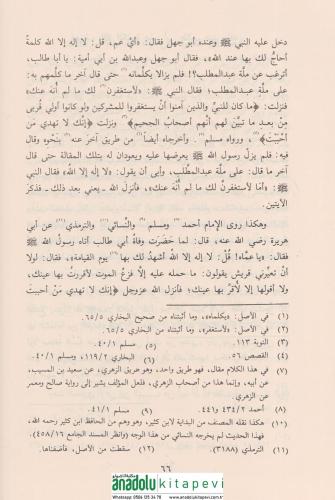 دخل عليه النبي ﷺ وعنده أبو جهل فقال: «أيْ عم، قل: لا إله إلا الله كلمةً
أحاجُّ لك بها عند الله»، فقال أبو جهل وعبدالله بن أبي أمية: يا أبا طالب،
أترغب عن ملّة عبدالمطلب؟! فلم يزالا يكلِّمانه (١) حتى قال آخر ما كلَّمهم به:
على ملّةِ عبدالمطلب؛ فقال النبي ﷺ: «لأستغفرن (٢) لك ما لم أنْهَ عنك»
فنزلت: ﴿ما كان للنبيِّ والذين آمنوا أنْ يستغفروا للمشركين ولو كانوا أولي قُربى
مِنْ بعدِ ما تبيَّن لهم أنَّهم أصحابُ الجحيم﴾ (٣)، ونزلت ﴿إنك لا تهدي مَن
أَحْبَبْتَ﴾ (٤)، ورواه مسلم (٥). وأخرجاه أيضاً (٦) من طريق آخر عنه بنحوه وقال
فيه: فلم يزلْ رسولُ الله ﷺ يعرضها عليه ويعودان له بتلك المقالة حتى قال
آخر ما قال: على ملّةِ عبدالمطّلب، وأبى أن يقول: «لا إله إلا الله» فقال النبي
ﷺ: «أما لأستغفرنَّ لكَ ما لم أنه عنك»، فأنزل الله -يعني بعد ذلك- فذكر
الآيتين.
وهكذا روى الإمام أحمد (٨) ومسلم (٩) والنَّسائي (١٠) والترمذي (١١) عن أبي
هريرة رضي الله عنه، قال: لما حَضَرَت وفاةُ أبي طالب أتاه رسولُ الله ﷺ
فقال: «يا عمَّاه! قُلْ: لا إله إلا الله أشهدُ لك بها (١٢) يوم القيامة»، فقال: لولا
أن تعيِّرني قريش يقولون: ما حمله عليه إلّا فزعُ الموت لأقررتُ بها عينك،
ولا أقولها إلا لأُقرّ بها عينك؛ فأنزل الله عزوجل ﴿إنك لا تهدي مَنْ أحببتَ
(١) في الأصل: «يكلماه»، وما أثبتناه من صحيح البخاري ٦٥/٥.
(٢) في الأصل: «لأستغفره»، وما أثبتناه من البخاري ٦٥/٥.
(٣) التوبة ١١٣. (٥) مسلم ٤٠/١.
(٤) القصص ٥٦. (٦) البخاري ١١٩/٢، ومسلم ٤٠/١.
(٧) في هذا الكلام مقال، فهو طريق واحد، وهو طريق الزهري، عن سعيد بن المسيب،
عن أبيه، وإنما هذا من أصحاب الزهري، فلعل المؤلف يشير إلى رواية صالح ومعمر
عن الزهري.
(٨) أحمد ٤٣٤/٢ و٤٤١. (٩) مسلم ٤١/١.
(١٠) هكذا نقله المصنف من البداية لابن كثير، وهو وهم من الحافظ ابن كثير رحمه الله،
فهذا الحديث لم يخرجه النسائي من هذا الوجه (وانظر المسند الجامع ٤٥٨/١٦).
(١١) الترمذي (٣١٨٨). (١٢) سقطت من الأصل، فأضفناها.
٦٦
anadolu kitapevi
Whatsapp: 0506 125 34 78 www.anadolukitapevi.com